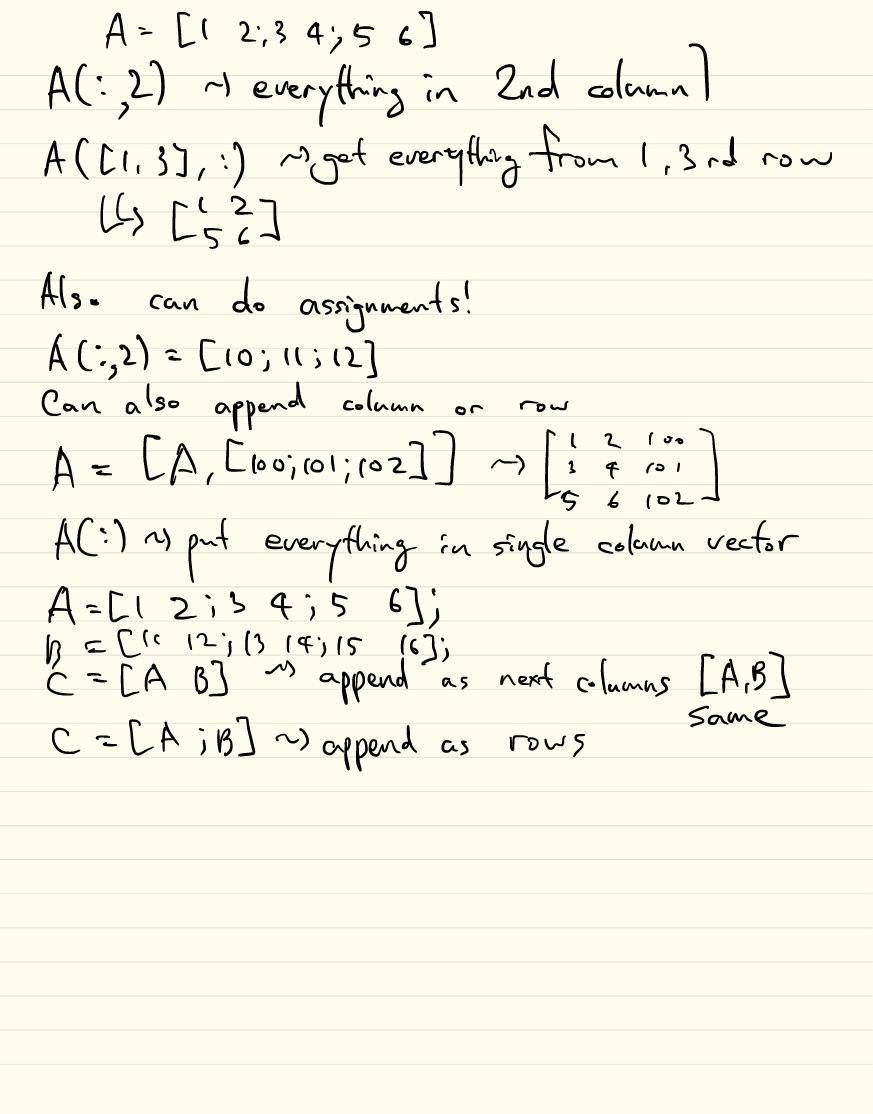 A = [1 2;3 4;5 6]
A(:,2) ~) everything in 2nd column]
A([1,3],:) ~) get everything from 1,3rd row
↳ [1 2
5 6]
Also can do assignments!
A(:,2) = [10; 11; 12]
Can also append column or row
A = [A,[100;101;102]] ~) [1 2 100
3 4 101
5 6 102]
A(:) ~) put everything in single column vector
A=[1 2;3 4;5 6];
B = [11 12;13 14;15 16];
C = [A B] ~) append as next columns [A,B]
same
C = [A ;B] ~) append as rows